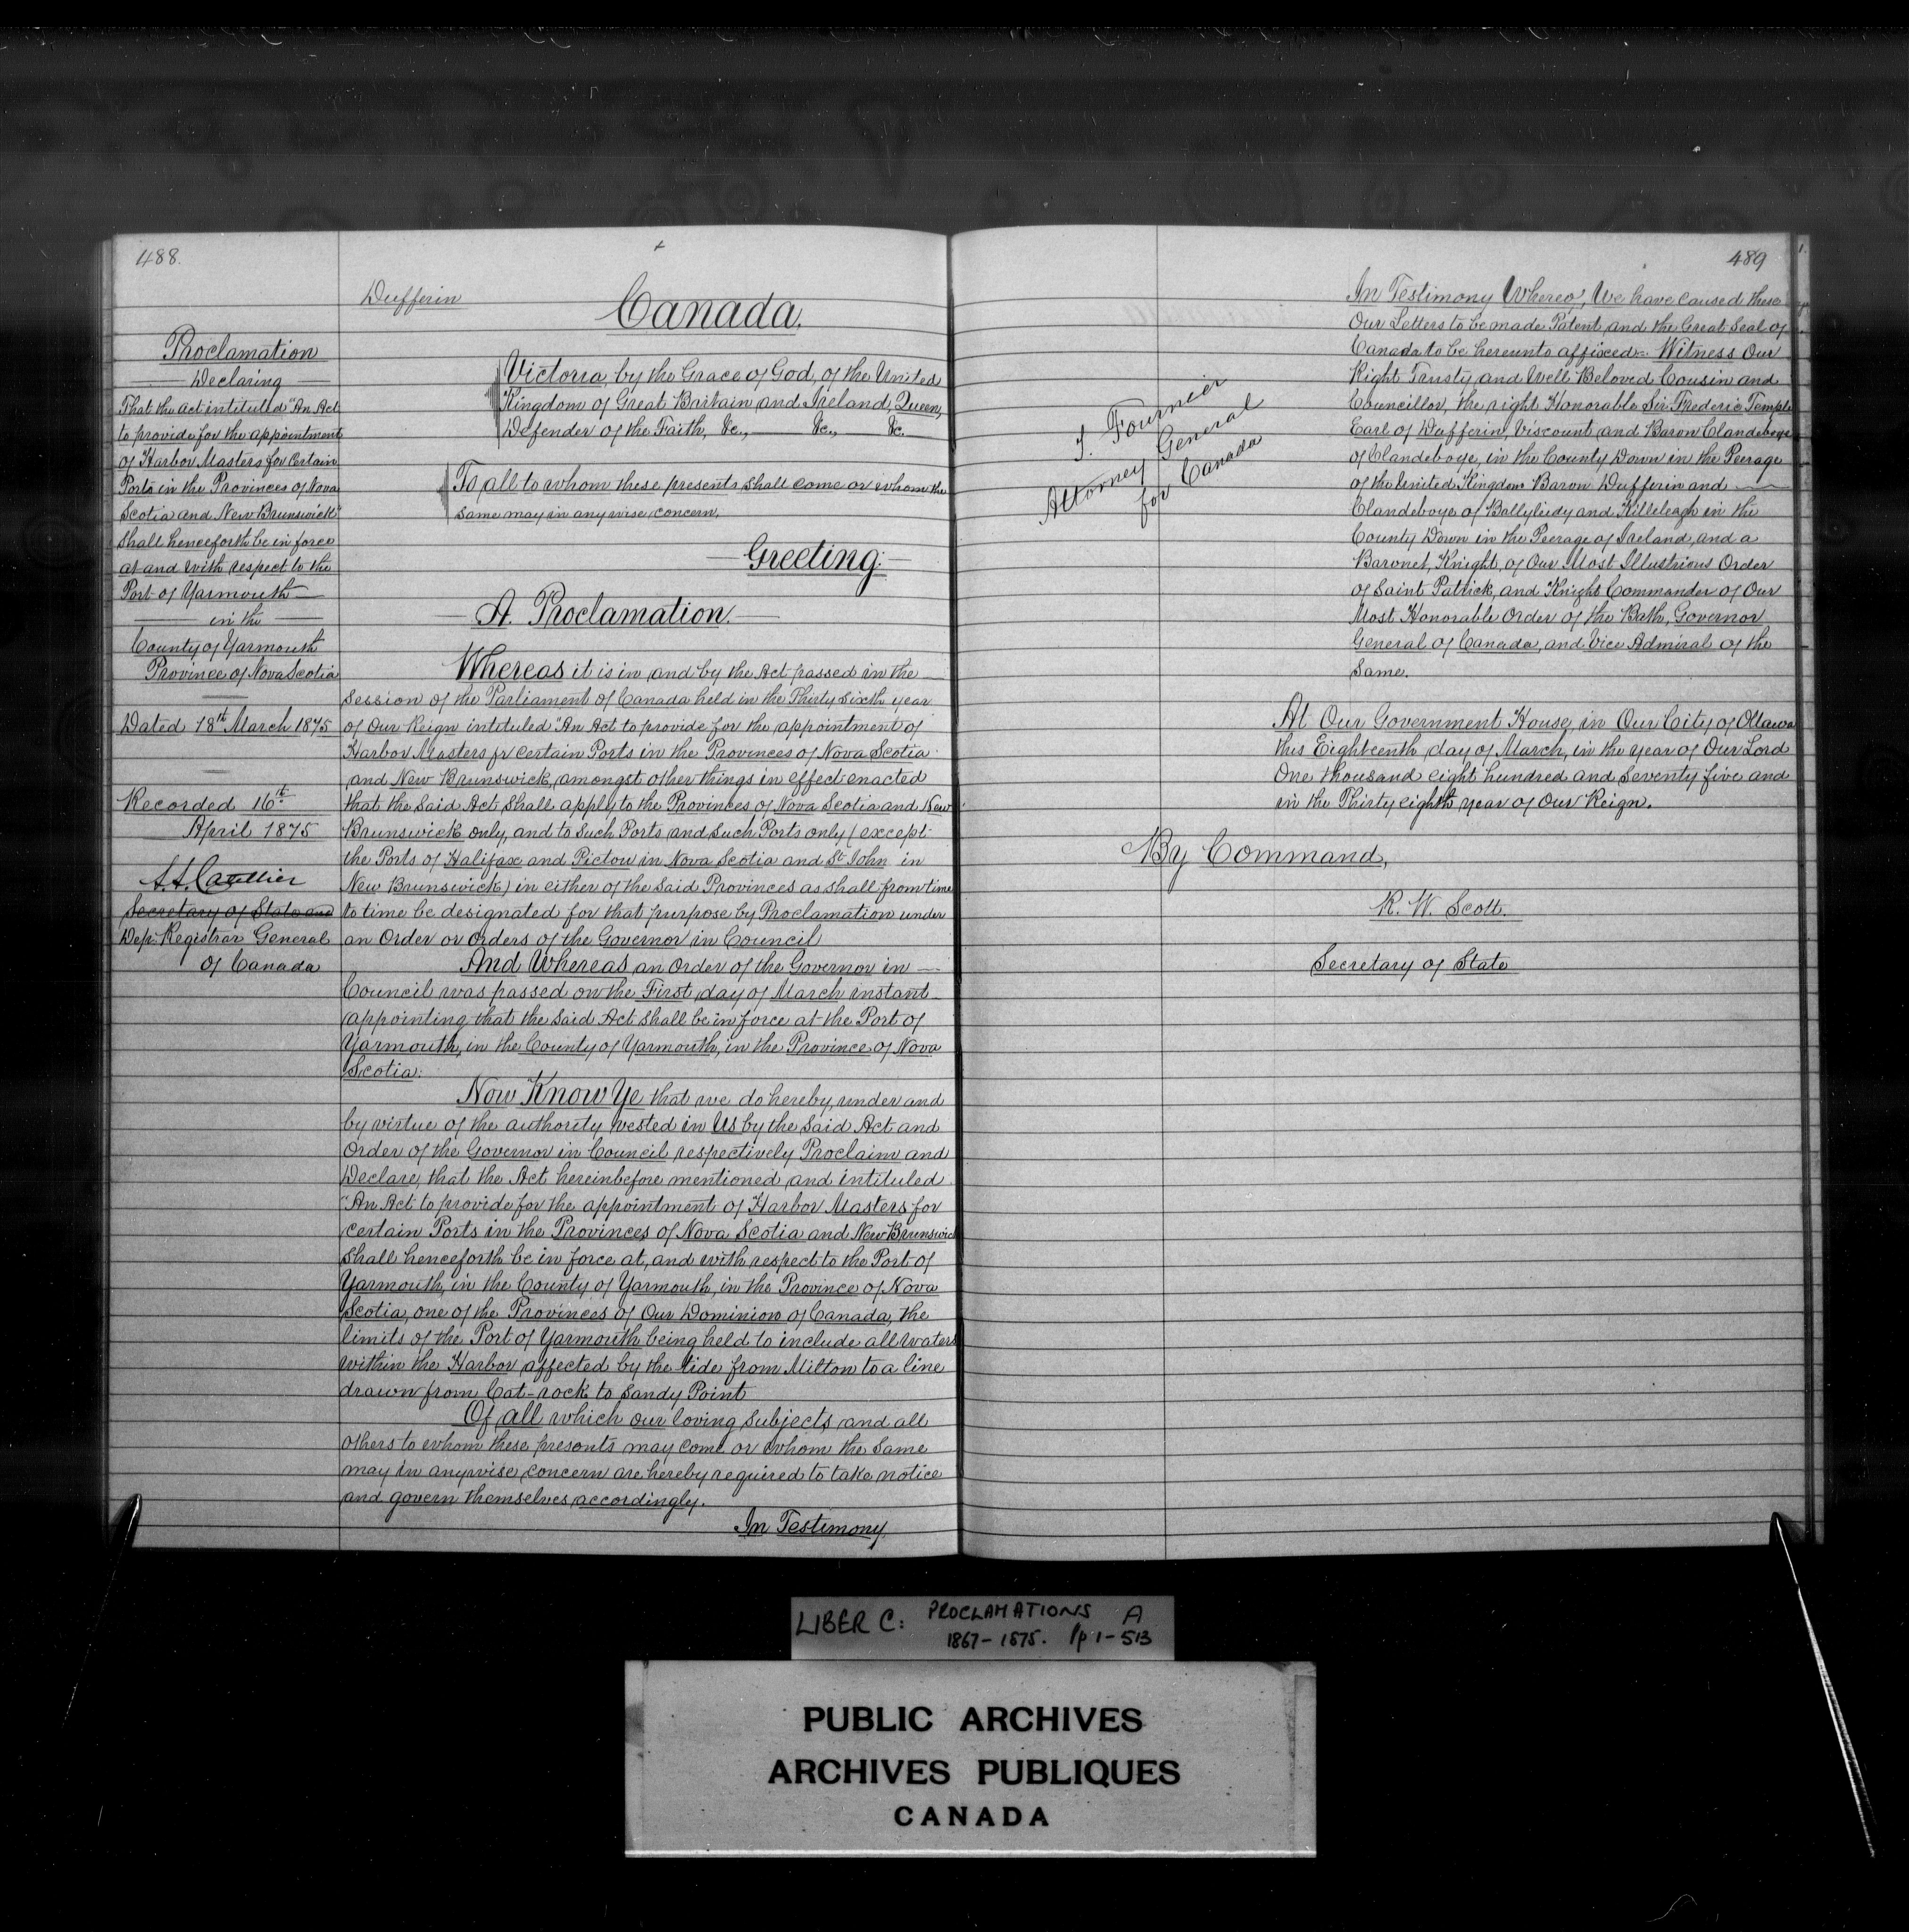 488.
Dufferin
Canada.
Proclamation
Declaring
That the act intituled "An Act
to provide for the appointment
of Harbor Masters for Certain
Ports in the Provinces of Nova
Scotia and New Brunswick"
shall henceforth be in force
at and with respect to the
Port of Yarmouth
in the
County of Yarmouth
Province of Nova Scotia
Dated 18th March 1875
Recorded 16th
April 1875
Secretary of State and
Dep. Registrar General
of Canada
Victoria, by the Grace of God, of the United
Kingdom of Great Britain and Ireland, Queen,
Defender of the Faith, &c., &c., &c.
To all to whom these presents shall come or whom the
same may in anywise concern,
Greeting:
A. Proclamation.
Whereas it is in and by the Act passed in the
Session of the Parliament of Canada held in the Thirty Sixth year
of Our Reign intituled "An Act to provide for the appointment of
Harbor Masters fr certain Ports in the Provinces of Nova Scotia
and New Brunswick, amongst other things in effect enacted
that the said Act shall apply to the Provinces of Nova Scotia and New
Brunswick only, and to such Ports and such Ports only (except
the Ports of Halifax and Pictou in Nova Scotia and St John in
New Brunswick) in either of the said Provinces as shall from time
to time be designated for that purpose by Proclamation under
an Order or Orders of the Governor in Council
And Whereas an Order of the Governor in
Council was passed on the First day of March instant
appointing that the said Act shall be in force at the Port of
Yarmouth, in the County of Yarmouth, in the Province of Nova
Scotia:
Now Know Ye that we do hereby, under and
by virtue of the authority vested in Us by the said Act and
Order of the Governor in Council respectively Proclaim and
Declare, that the Act hereinbefore mentioned and intituled
"An Act to provide for the appointment of Harbor Masters for
certain Ports in the Provinces of Nova Scotia and New Brunswick
shall henceforth be in force at, and with respect to the Port of
Yarmouth, in the County of Yarmouth, in the Province of Nova
Scotia, one of the Provinces of Our Dominion of Canada, the
limits of the Port of Yarmouth being held to include all waters
within the Harbor affected by the tide from Milton to a line
drawn from Cat-rock to Sandy Point
Of all which our loving subjects and all
others to whom these presents may come or whom the same
may in anywise concern are hereby required to take notice
and govern themselves accordingly.
In Testimony
489
In Testimony Whereof, We have caused these
Our Letters to be made Patent and the Great Seal of
Canada to be hereunto affixed. Witness Our
Right Trusty and Well Beloved Cousin and
Councillor, the right Honorable Sir Frederic Temple
Earl of Dufferin, Viscount and Baron Clandeboye
of Clandeboye, in the County Down in the Peerage
of the United Kingdom Baron Dufferin and
Clandeboye of Ballyleidy and Killeleagh in the
County Down in the Peerage of Ireland, and a
Baronet, Knight, of Our Most Illustrious Order
of Saint Patrick, and Knight Commander of Our
Most Honorable Order of the Bath, Governor
General of Canada, and Vice Admiral of the
Same.
Fournier
Attorney General
for Canada
At Our Government House, in Our City of Ottawa
this Eighteenth day of March, in the year of Our Lord
One thousand eight hundred and Seventy five and
in the Thirty eighth year of Our Reign.
By Command,
R. W. Scott.
Secretary of State
LIBER C: PROCLAMATIONS A
1867-1875. pp 1-513
PUBLIC ARCHIVES
ARCHIVES PUBLIQUES
CANADA